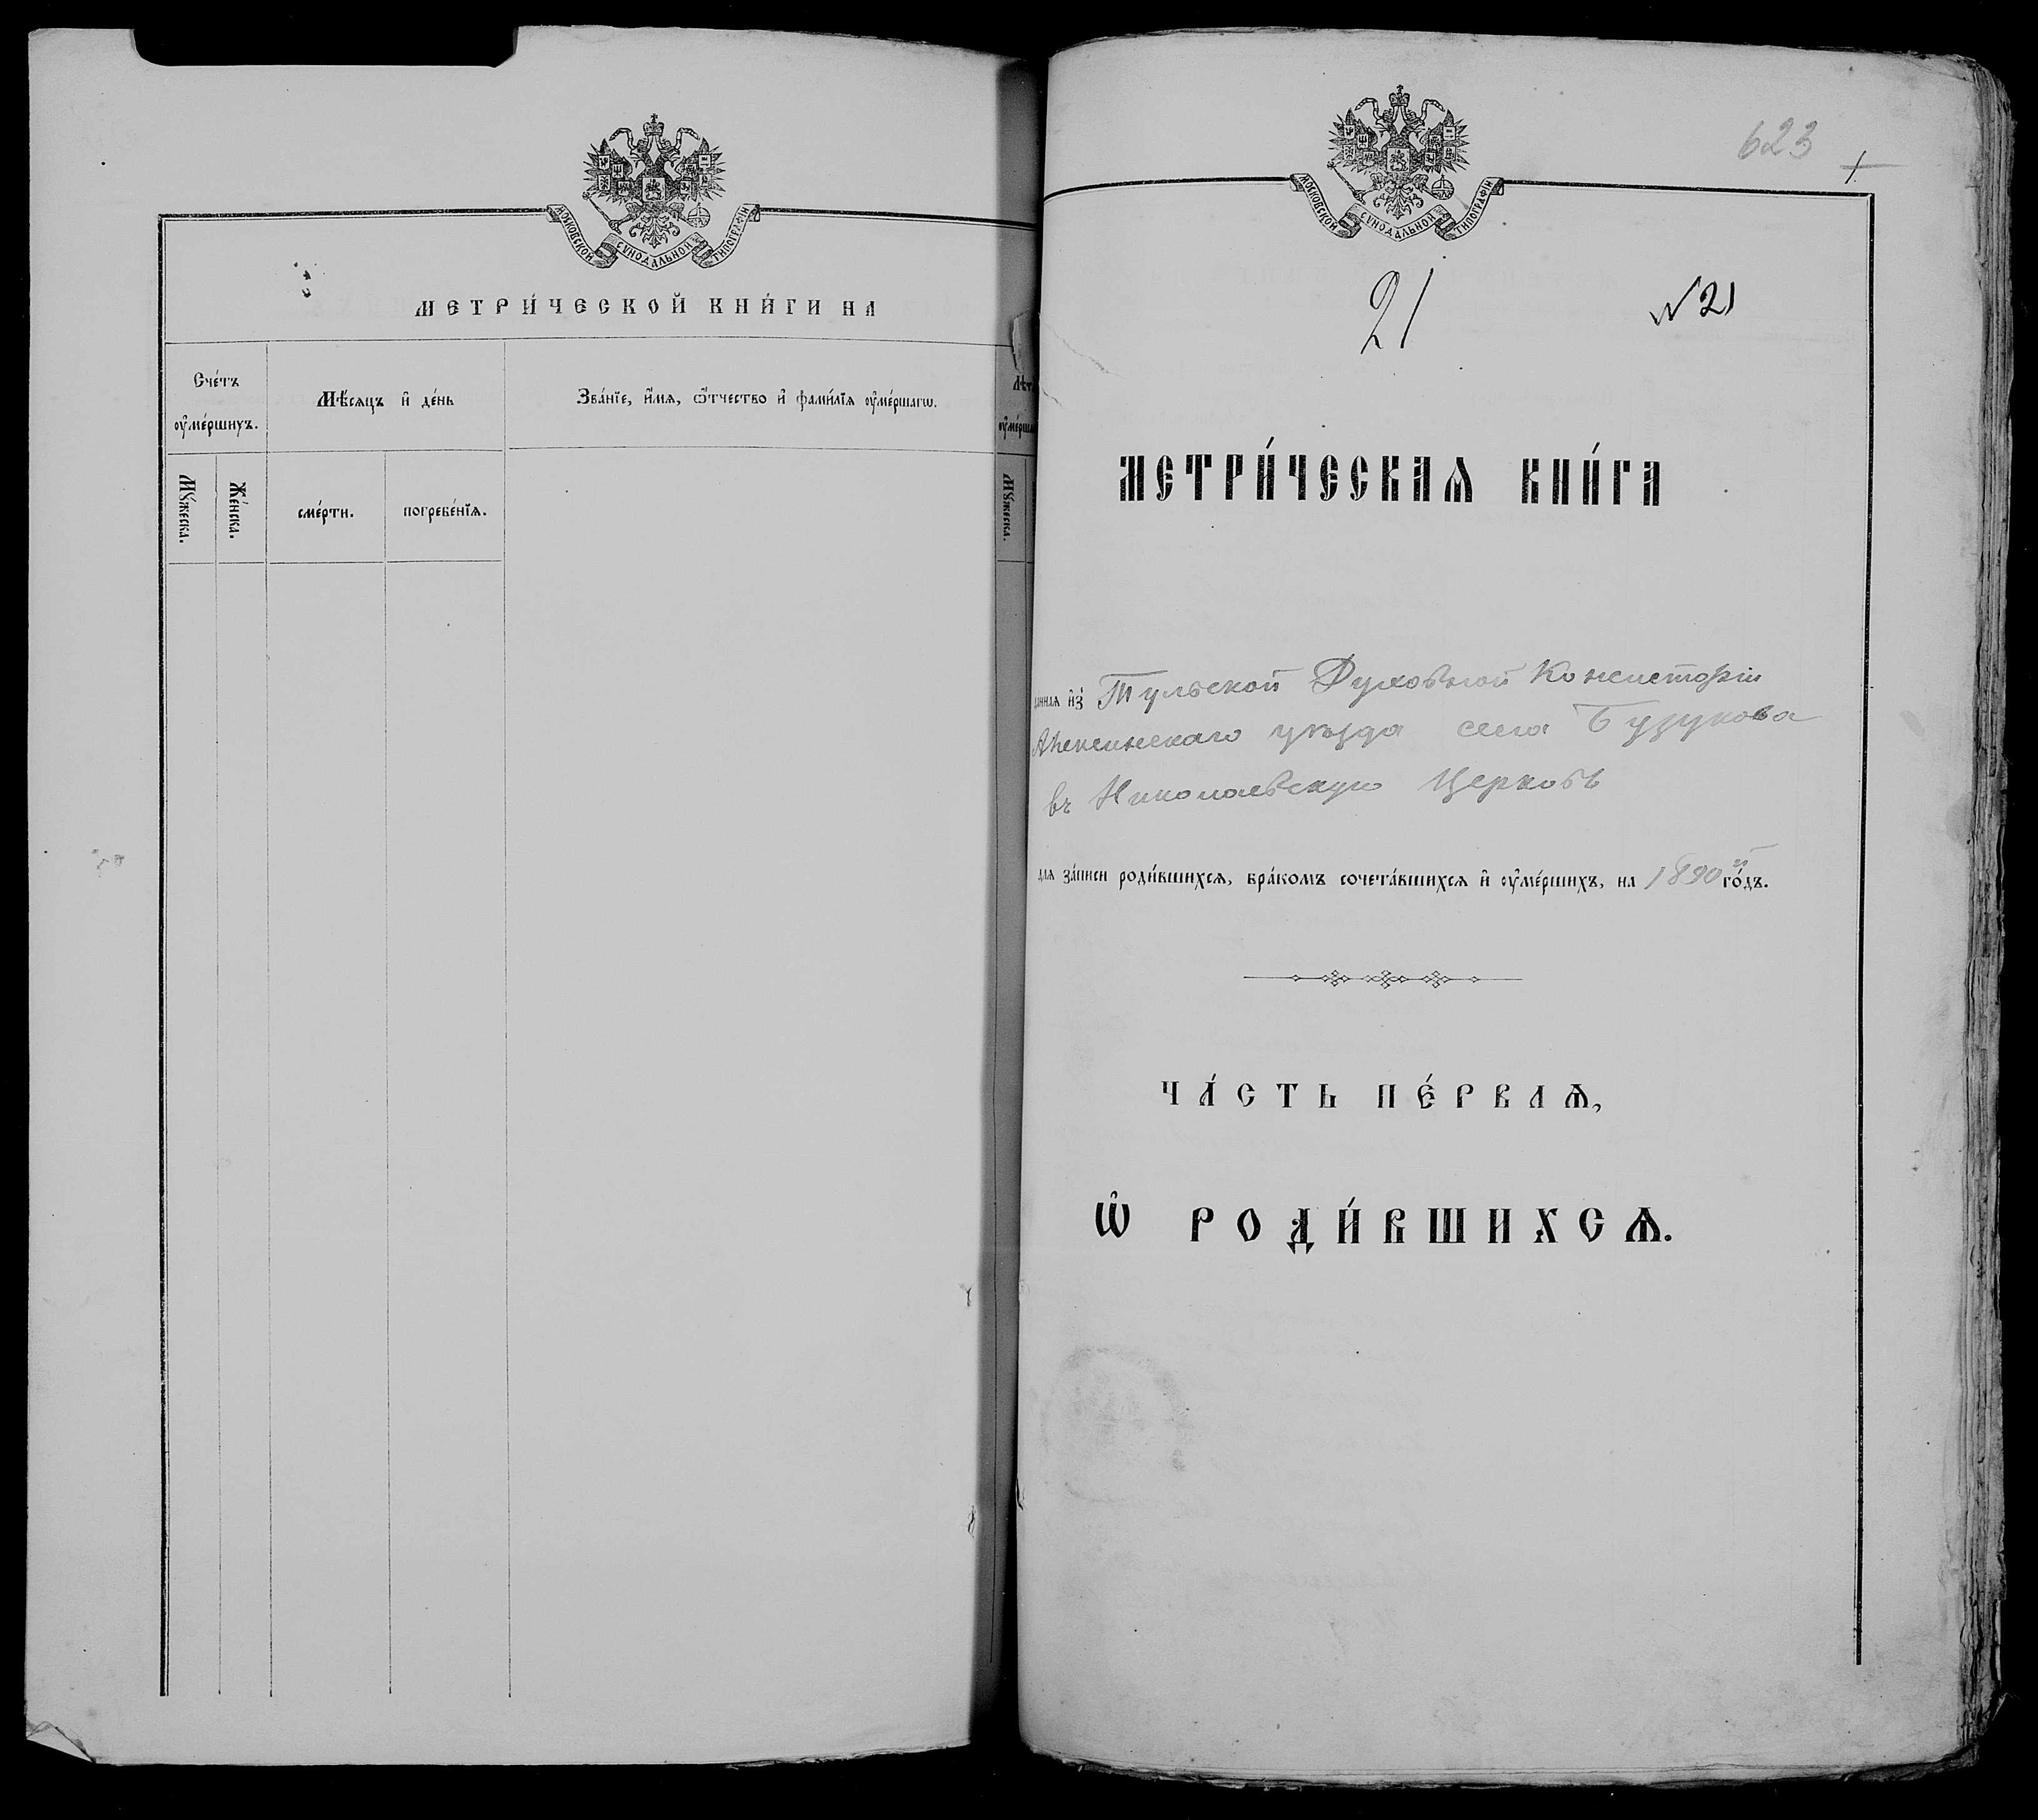 МОСКОВСКОЙ СѴНОДАЛЬНОЙ ТИПОГРАФІИ
МЕТРИ́ЧЕСКОЙ КНИ́ГИ НА
Сче́тъ ᲂу҆ме́ршихъ.
Мѣ́сяцъ и҆ де́нь
Зва́нїе, и҆́мѧ, ѻ҆́тчество и҆ фами́лїѧ ᲂу҆ме́ршагѡ.
Мꙋ́жеска.
Же́нска.
сме́рти.
погребе́нїѧ.
Мꙋ́жеска.
623
1
МОСКОВСКОЙ СѴНОДАЛЬНОЙ ТИПОГРАФІИ
21
№ 21
МЕТРИ́ЧЕСКАѦ КНИ́ГА
данная и҆з̾ Тульской Духовной Консисторіи
Алексинскаго уѣзда села Бузукова
въ Николаевскую Церковь
для за́писи роди́вшихсѧ, бра́комъ сочета́вшихсѧ и҆ ᲂу҆ме́ршихъ, на 1890й го́дъ.
ЧА́СТЬ ПЕ́РВАѦ,
Ѡ҆ РОДИ́ВШИХСѦ.